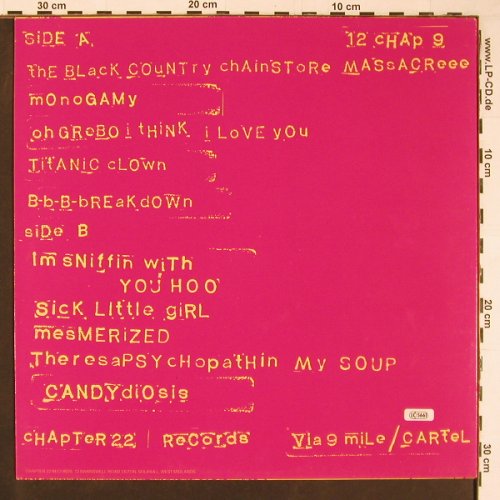 30 cm 20 cm 10 cm
SIDE A 12 CHAP 9
thE BLacK COUNTry chAiNSTORe MASSACReee
mOnoGAMy
oh GReBO i tHiNK i LOVE yOU
TiTANiC cLOwn
B-b-B-bREaKdOWn
siDe B
Im SNiFFin WiTH
YOU HOO
SiCK LIttLe giRL
mesMERIZED
TheresaPSYcHOpatHin My SOUP
CANDYdiOsis
cHApTeR 22 ReCOrds Via 9 miLe/CARTeL
LC 5661
www.LP-CD.de
10 cm
20 cm
30 cm